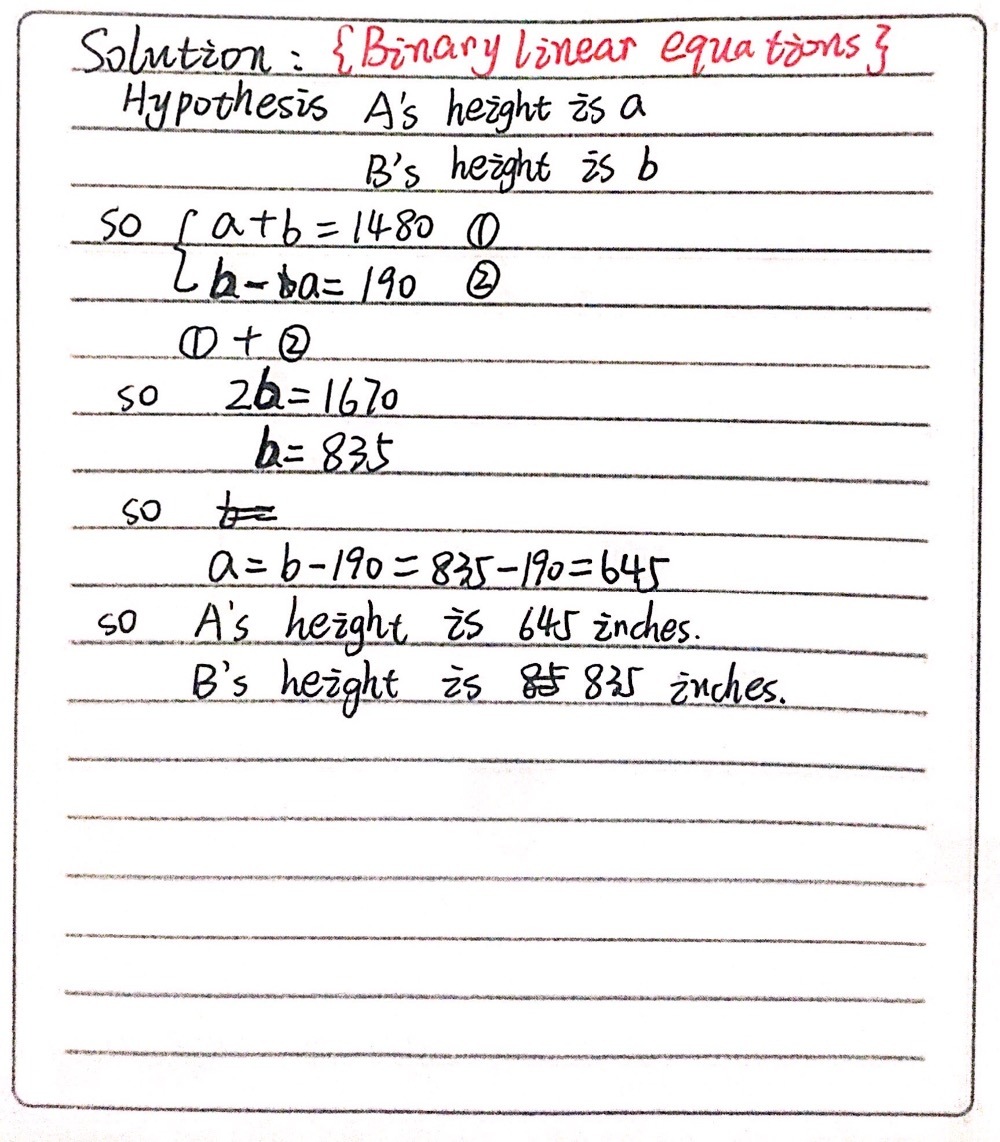 Solution: {Binary linear equations}
Hypothesis A's height is a
B's height is b
so { a+b=1480 ①
b-a=190 ②
①+②
so 2b=1670
b=835
so
a=b-190=835-190=645
so A's height is 645 inches.
B's height is 835 inches.